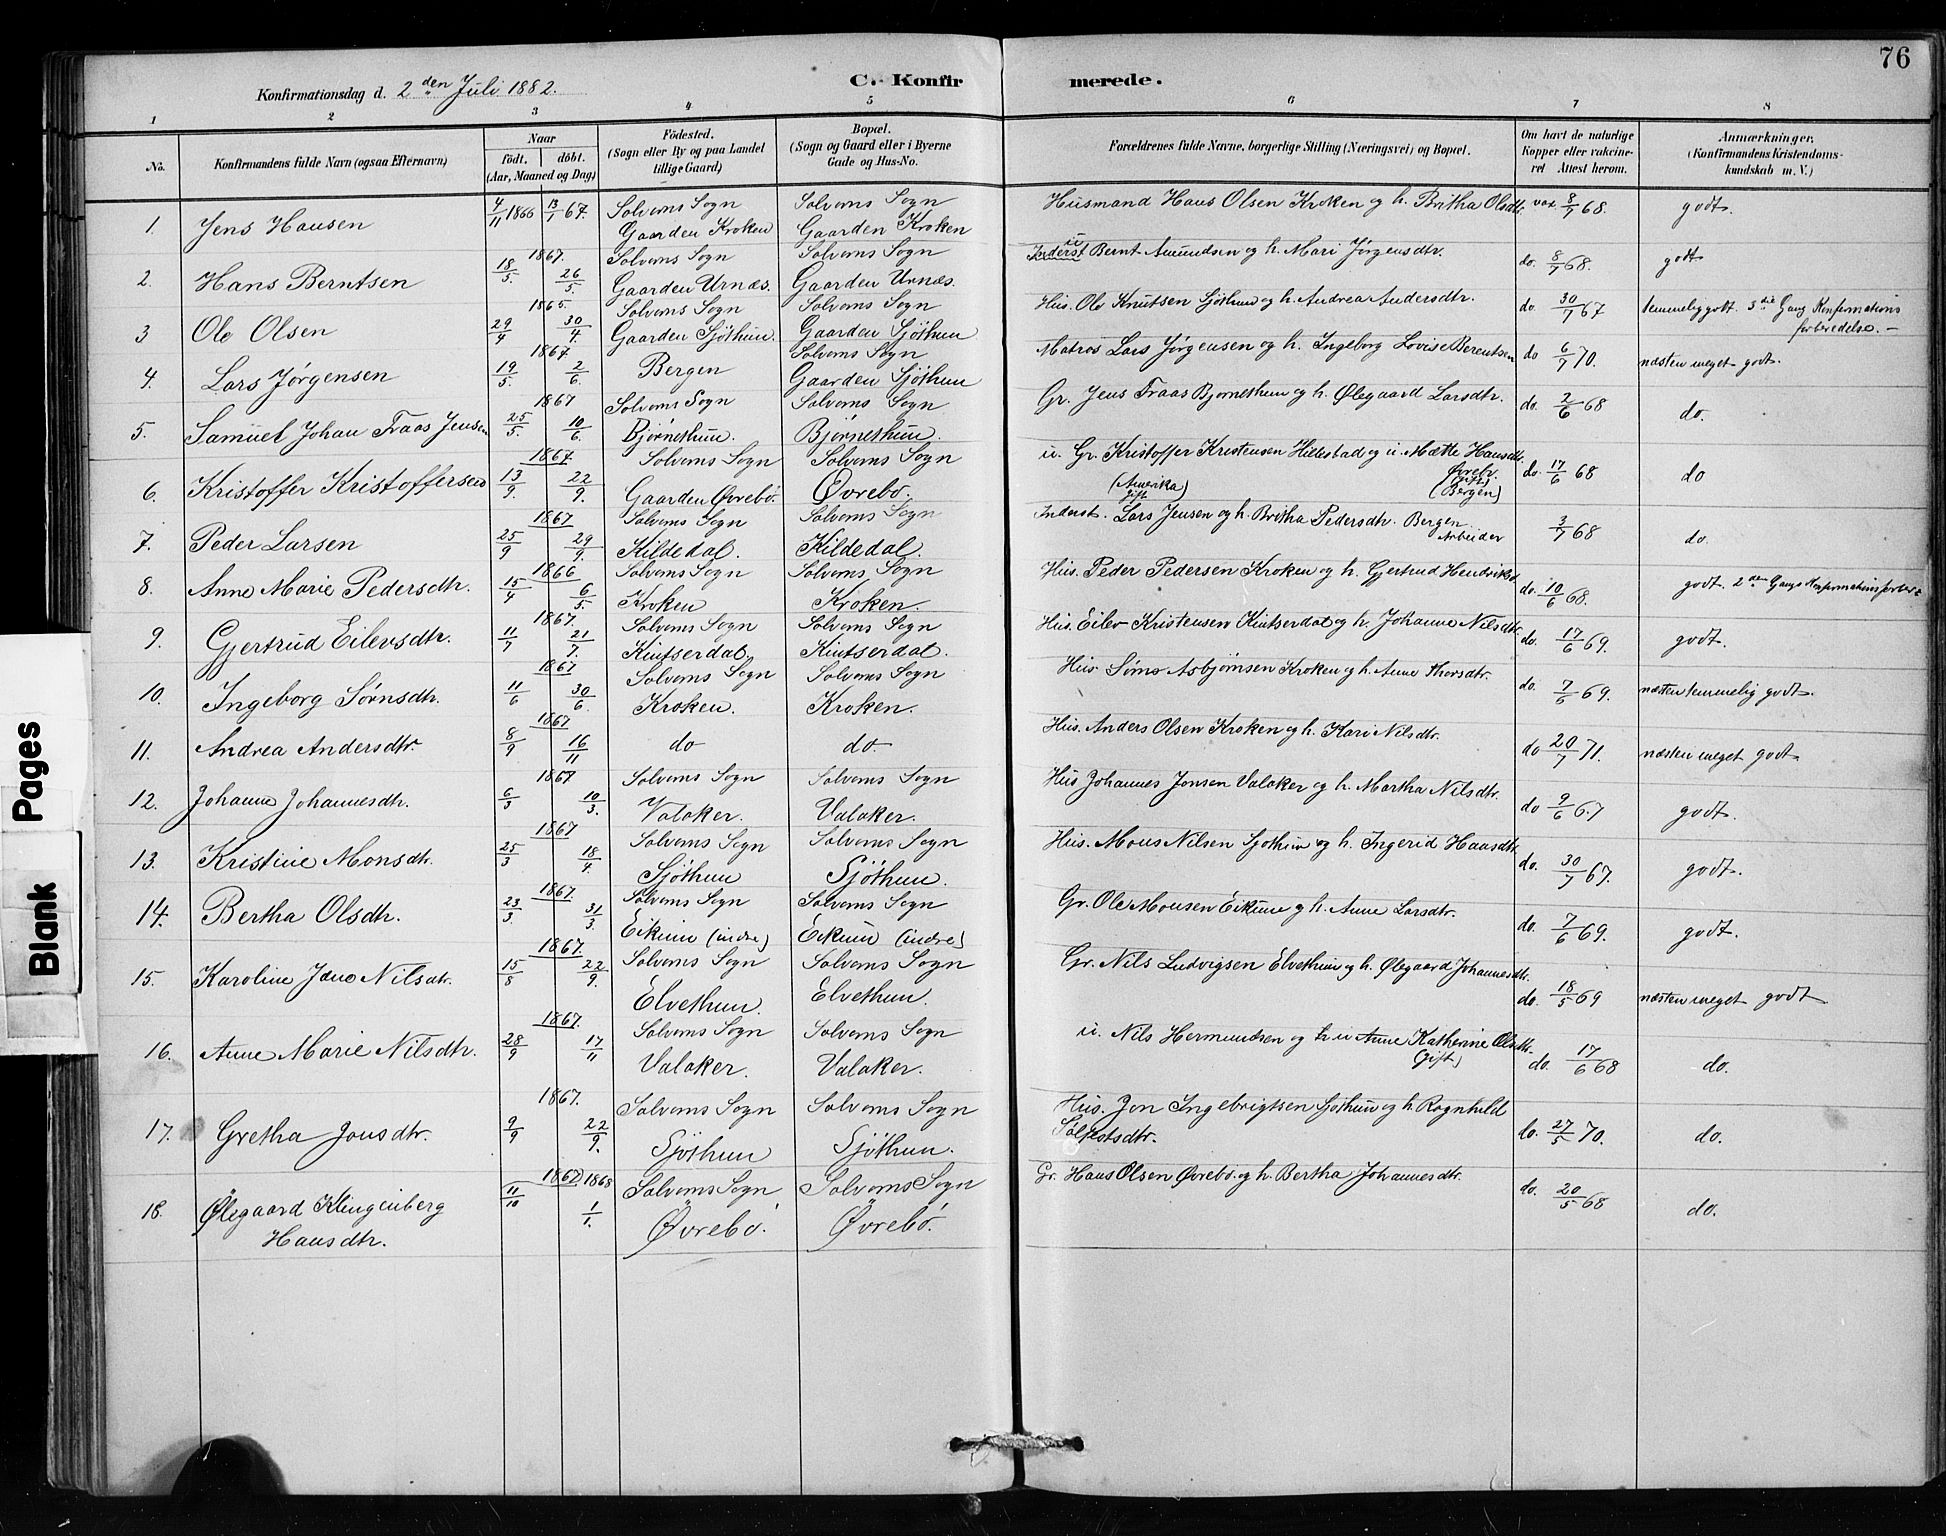 76
Konfirmationsdag d. 2den Juli 1882.
C. Konfirmerede.
1 2 3 4 5 6 7 8
No.
Konfirmandens fulde Navn (ogsaa Efternavn)
Naar
födt. döbt.
(Aar, Maaned og Dag)
Födested.
(Sogn eller By og paa Landet
tillige Gaard)
Bopæl.
(Sogn og Gaard eller i Byerne
Gade og Hus-No.
Forældrenes fulde Navne, borgerlige Stilling (Næringsvei) og Bopæl.
Om havt de naturlige
Kopper eller vakcine-
ret Attest herom.
Anmærkninger,
(Konfirmandens Kristendoms-
kundskab m. V.)
1. Jens Hansen 4/11 1866 13/1 67. Solvorns Sogn Gaarden Kroken Solvorns Sogn Gaarden Kroken Husmand Hans Olsen Kroken og h. Britha Olsdtr. vax. 8/7 68. godt.
2. Hans Berntsen 1867. 18/5. 26/5. Solvorns Sogn Gaarden Urnæs. Solvorns Sogn Gaarden Urnæs. Inderst Bernt Amundsen og h. Mari Jørgensdtr. do. 8/7 68. godt
3 Ole Olsen 1865 29/4 30/4. Solvorns Sogn Gaarden Sjöthun. Solvorns Sogn Gaarden Sjöthun Hus. Ole Knutsen Sjöthun og h. Andrea Andersdtr. do 30/7 67 temmelig godt. 3die Gang Konfirmations forberedelse. —
4. Lars Jørgensen 1867. 19/5. 2/6. Bergen Solvorns Sogn Gaarden Sjöthun Matros Lars Jørgensen og h. Ingeborg Lovise Berentsen do 6/7 70. næsten meget godt.
5. Samuel Johan Fraas Jensen 1867 25/5. 10/6. Solvorns Sogn Bjørnethun. Solvorns Sogn Bjørnethun. Gr. Jens Fraas Bjørnethun og h. Ølegaard Larsdtr. do. 2/6 68 do.
6. Kristoffer Kristoffersen 1867. 13/9. 22/9. Solvorns Sogn Gaarden Øvrebö. Solvorns Sogn Øvrebo. u. Gr. Kristoffer Kristensen Hillestad og u. Mætte Hansdtr. (Amerika) gift (gift) (Bergen) do. 17/6 68 do
7. Peder Larsen 1867 25/9 29/9. Solvorns Sogn Kildedal. Solvorns Sogn Kildedal. Inderst. Lars Jensen og h. Britha Pedersdtr. Bergen Arbeider 3/7 68 do.
8. Anne Marie Pedersdtr. 1866 15/4 6/5. Solvorns Sogn Kroken Solvorns Sogn Kroken. Hus. Peder Pedersen Kroken og h. Gjertrud do. 10/6 68. godt. 2den Gangs
9. Gjertrud Eilevsdtr. 1867. 11/7 21/7. Solvorns Sogn Kintserdal. Solvorns Sogn Kintserdal. Hus. Eilev Kristensen Kintserdal og h. Johanne Nilsdtr. do. 17/6 69. godt.
10. Ingeborg Sørnsdtr. 1867 11/6 30/6. Solvorns Sogn Kroken. Solvorns Sogn Kroken. Hus. Asbjørnsen Kroken og h. Anne Thorsdtr. do. 7/6 69. næsten temmelig godt.
11. Andrea Andersdtr. 1867 8/9 16/11 do do. Hus. Anders Olsen Kroken og h. Kari Nilsdtr. do 20/7 71. næsten meget godt
12. Johanne Johannesdtr. 1867 6/3 10/3. Solvorns Sogn Valaker. Solvorns Sogn Valaker. Hus Johannes Jonsen Valaker og h. Martha Nilsdtr. do 9/6 67 godt.
13. Kristine Monsdtr. 1867 25/3 18/4. Solvorns Sogn Sjöthun Solvorns Sogn Sjöthun. Hus. Mons Nilsen Sjöthun og h. Ingerid do. 30/7 67. godt.
14. Bertha Olsdtr. 1867. 23/3. 31/3. Solvorns Sogn Eikum (indre) Solvorns Sogn Eikum (indre) Gr. Ole Monsen Eikum og h. Anne Larsdtr. do. 7/6 69. godt.
15. Karoline Jane Nilsdtr. 1867. 15/8 22/9. Solvorns Sogn Elvethun. Solvorns Sogn Elvethun. Gr. Nils Ludvigsen Elvethun og h. Ølegaard Johannesdtr. do. 18/5 69 næsten meget godt
16. Anne Marie Nilsdtr. 1867. 28/9 17/11 Solvorns Sogn Valaker. Solvorns Sogn Valaker. u. Nils Hermundsen og u Anne Katherine Olsdtr. (gift) do. 17/6 68 do.
17. Gretha Jonsdtr. 1867. 9/9 22/9. Solvorns Sogn Sjöthun Solvorns Sogn Sjöthun. Hus. Jon Ingebrigtsen Sjöthun og h. Ragnhild do. 27/5 70. do.
18. Ølegaard Klingenberg Hansdtr. 1867 11/10 1868 1/1. Solvorns Sogn Øvrebö. Solvorns Sogn Øvrebö. Gr. Hans Olsen Øvrebö og h. Bertha Johannesdtr. do. 20/5 68 do.
Blank Pages